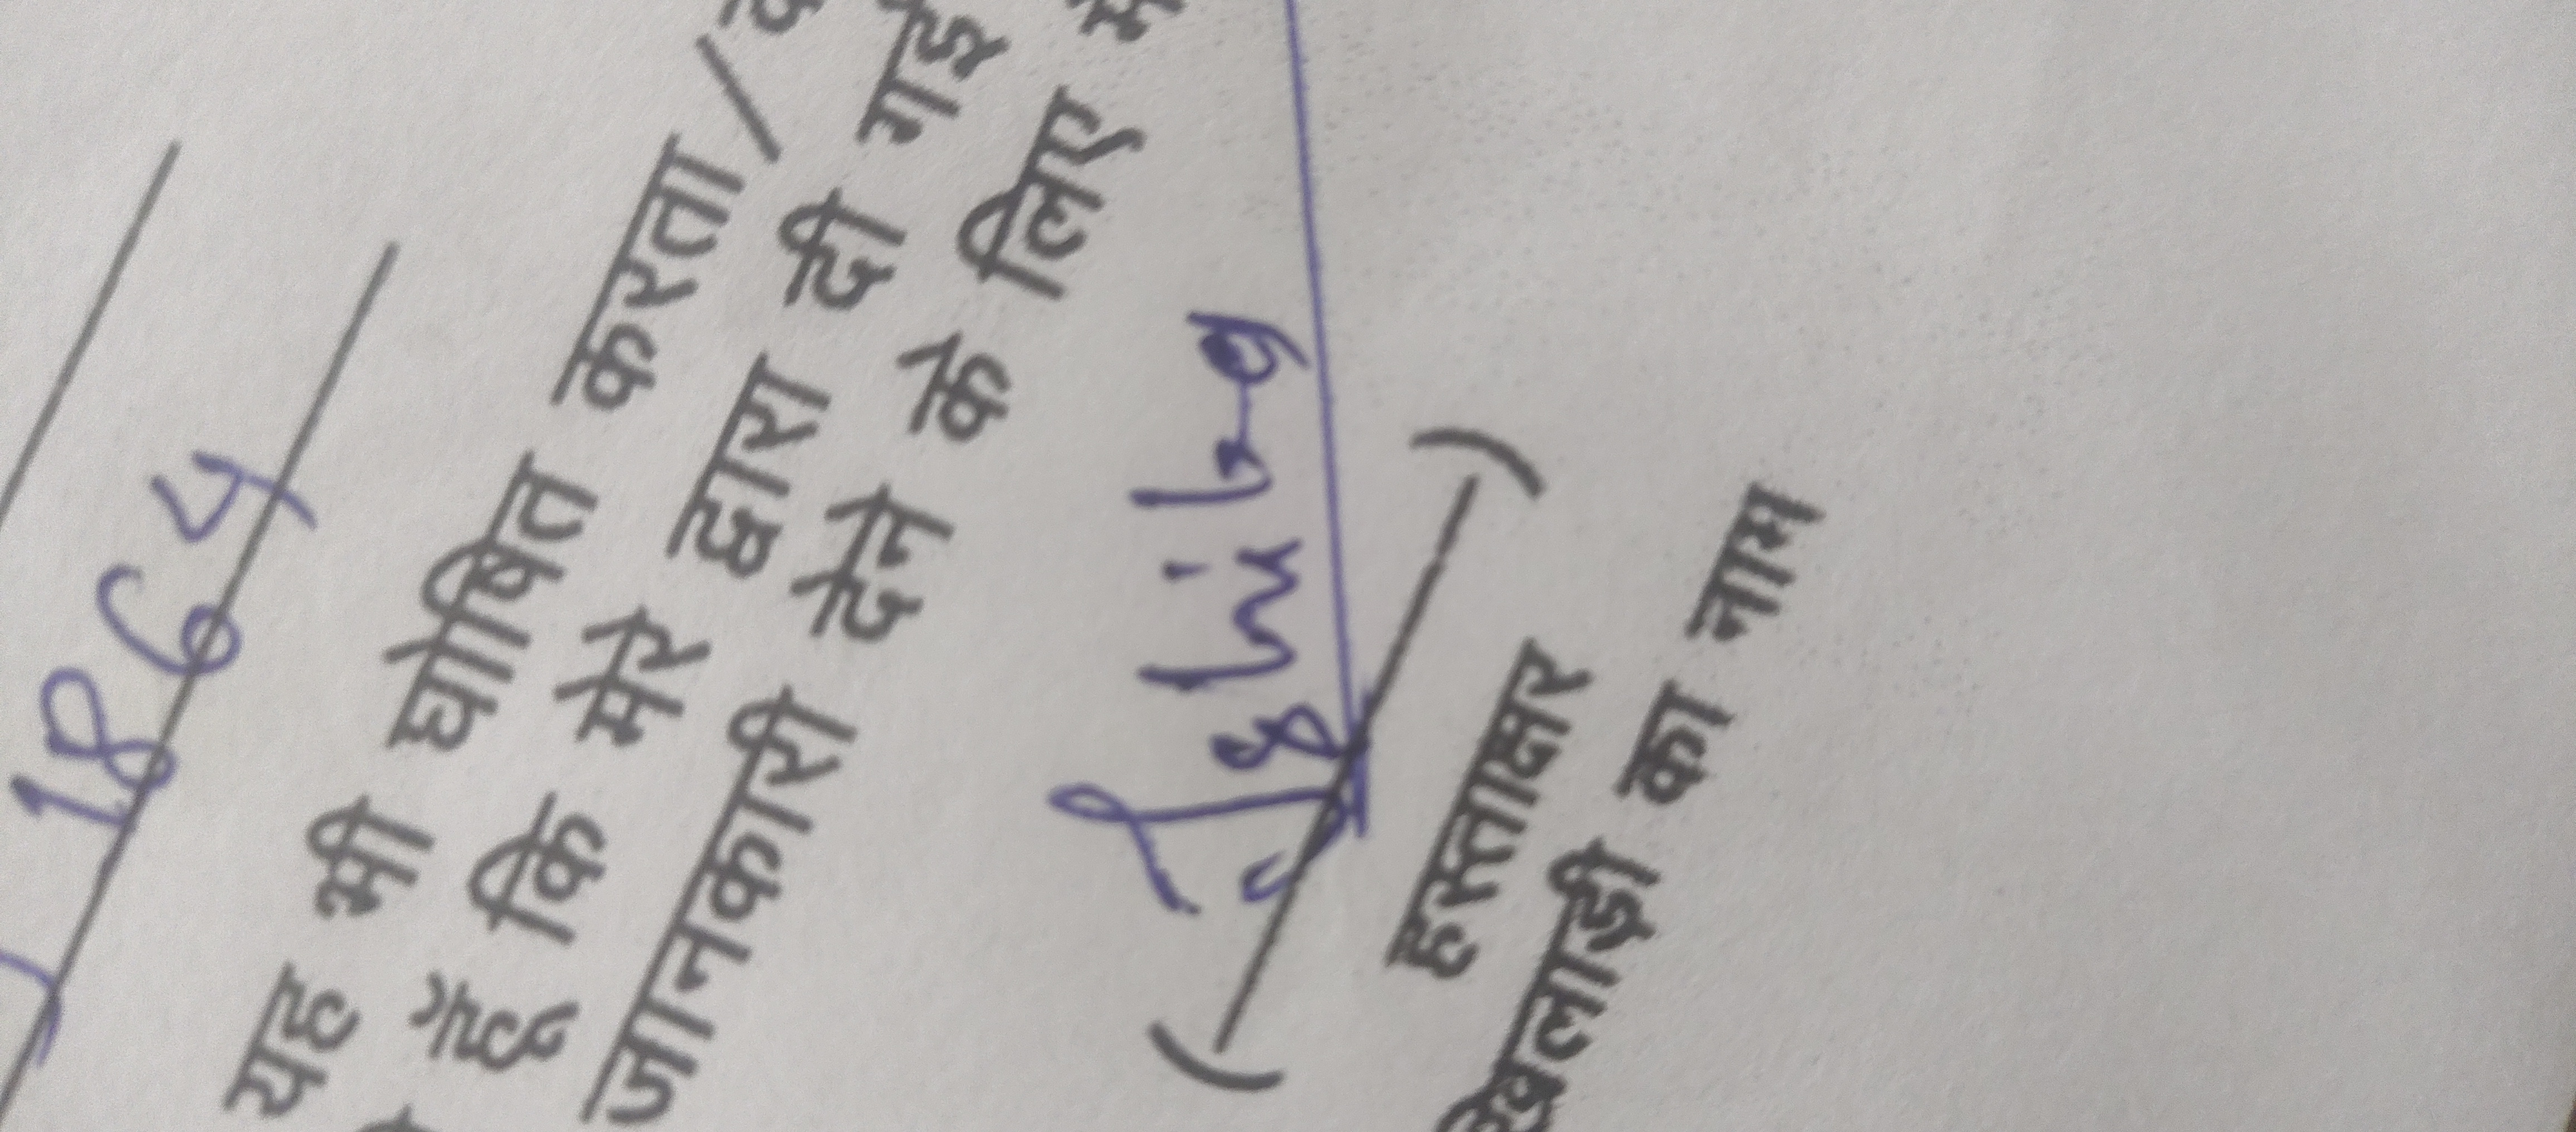 1864
यह भी घोषित करता/
हूँ कि मेरे द्वारा दी गई
जानकारी देने के लिए
( )
हस्ताक्षर
खिलाड़ी का नाम